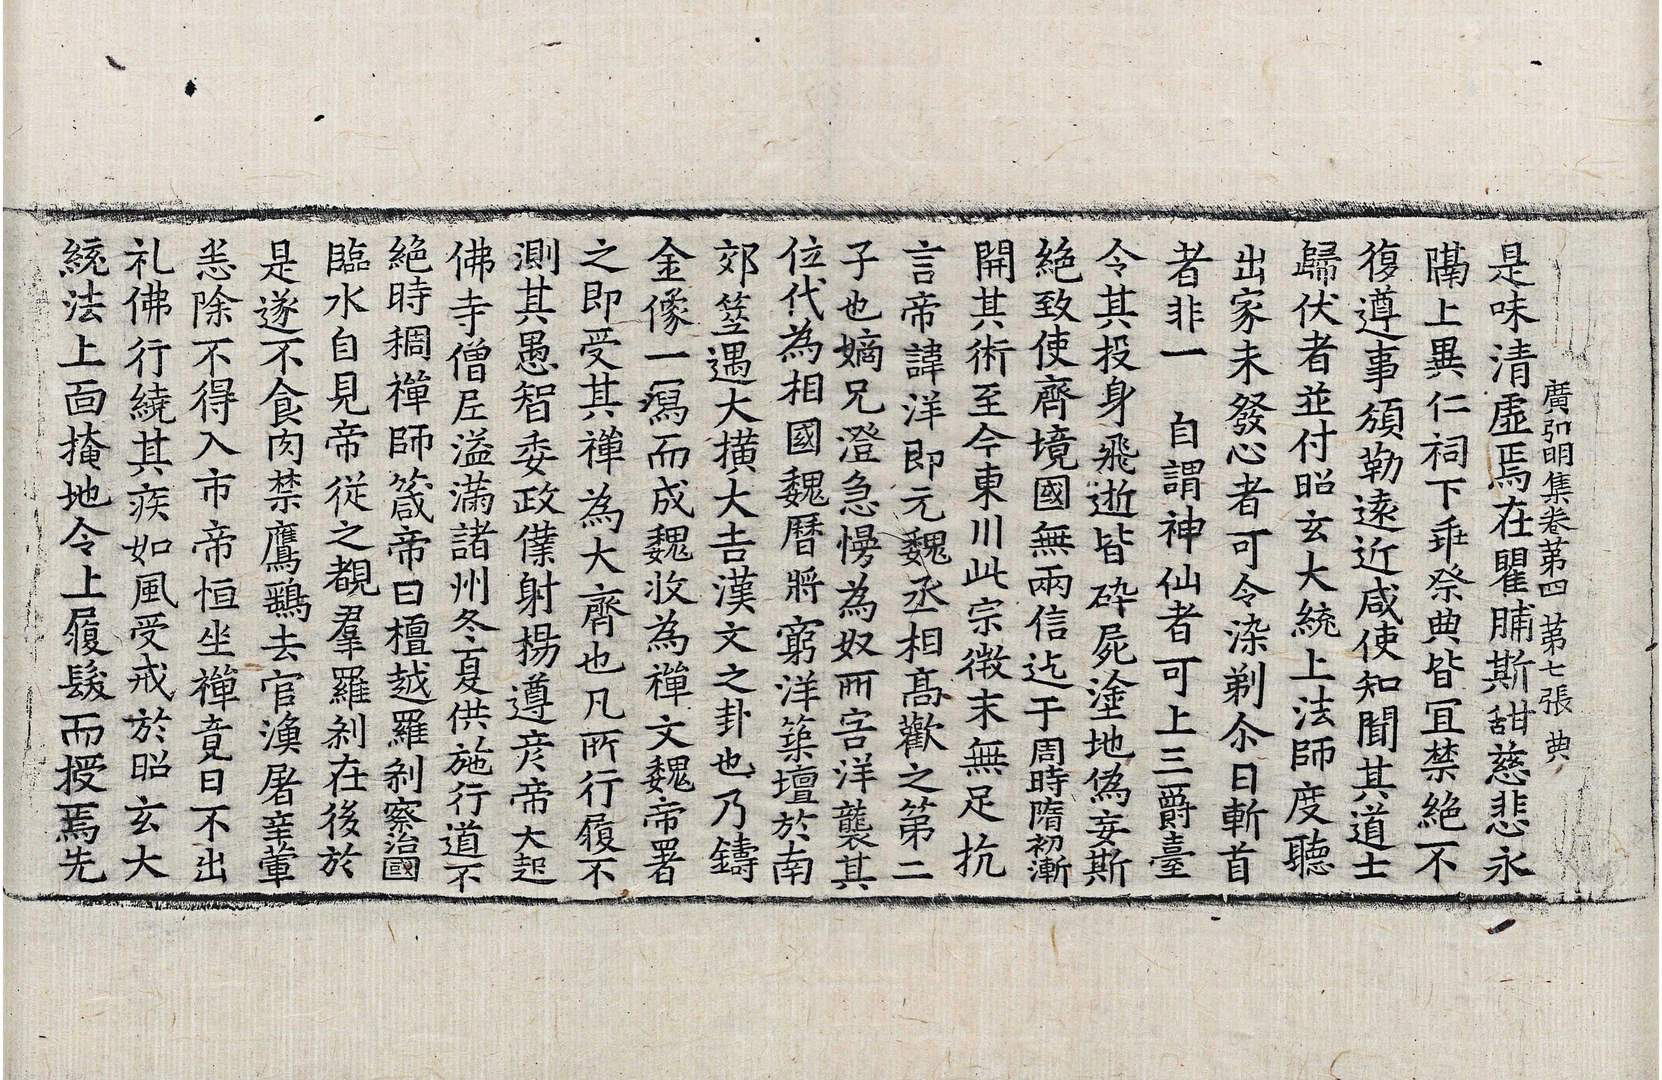 廣弘明集卷第四 第七張 典
是味清虛焉在瞿脯斯甜慈悲永
隔上異仁祠下乖祭典皆冝禁絕不
復遵事頒勒遠近咸使知聞其道士
歸伏者並付昭玄大統上法師度聽
出家未發心者可令染剃尒日斬首
者非一 自謂神仙者可上三爵臺
令其投身飛逝皆碎屍塗地偽妄斯
絕致使齊境國無兩信迄于周時隋初漸
開其術至今東川此宗微末無足抗
言帝諱洋即元魏丞相髙歡之第二
子也嫡兄澄急慢為奴所害洋襲其
位代為相國魏曆將窮洋築壇於南
郊筮遇大撗大吉漢文之卦也乃鑄
金像一㵼而成魏收為禪文魏帝署
之即受其禅為大齊也凡所行履不
測其愚智委政僕射楊遵彦帝大起
佛寺僧尼溢滿諸州冬夏供施行道不
絕時稠禪師箴帝曰檀越羅刹察治國
臨水自見帝從之覩羣羅刹在後於
是遂不食肉禁鷹鷂去官漁屠辛葷
悉除不得入市帝恒坐禪竟日不出
礼佛行繞其疾如風受戒於昭玄大
統法上面掩地令上履髮而授焉先